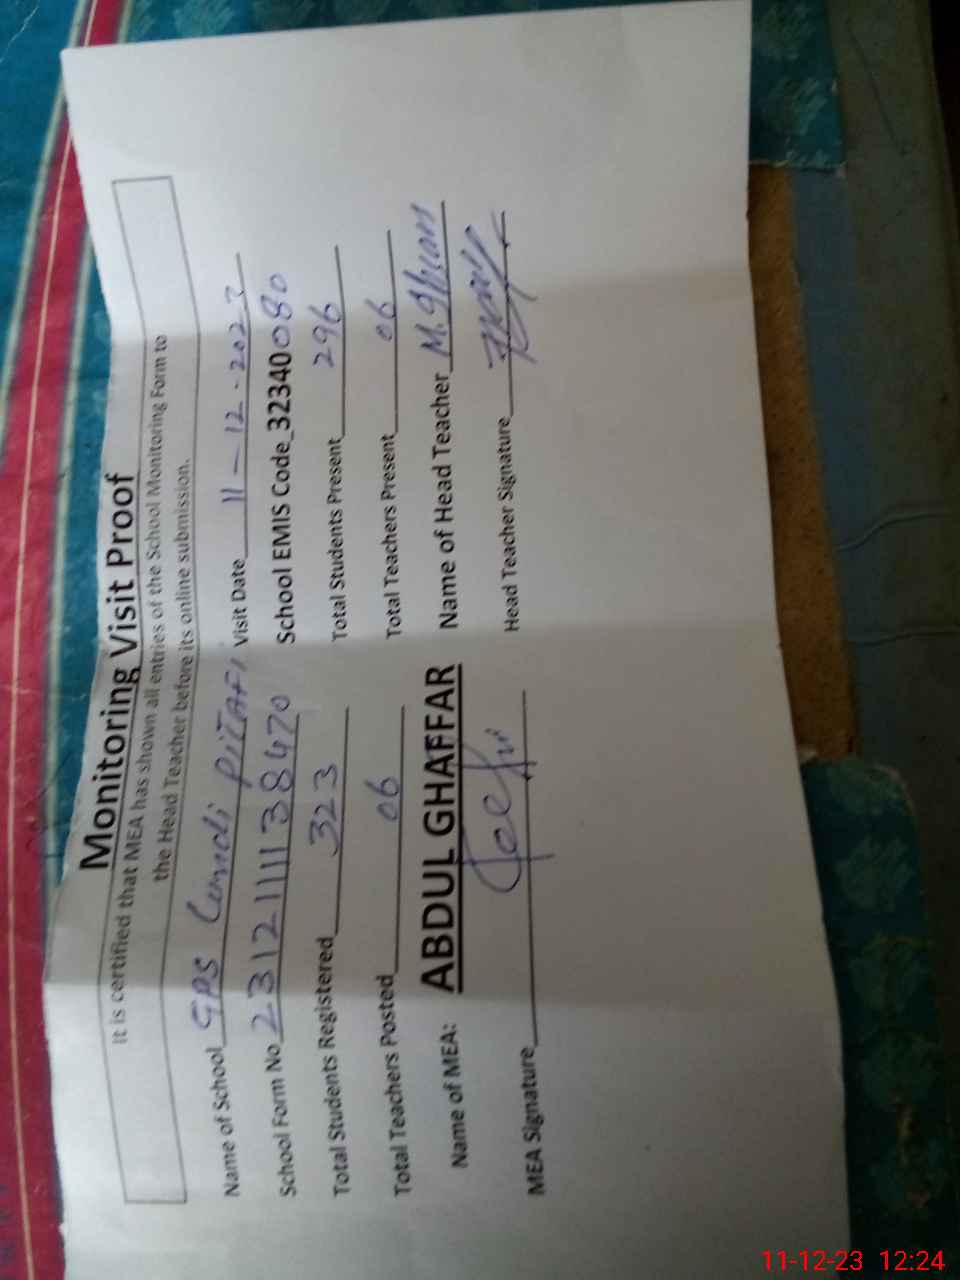 Monitoring Visit Proof
It is certified that MEA has shown all entries of the School Monitoring Form to
the Head Teacher before its online submission.
Name of School GPS Lundi PiTAFi Visit Date 11-12-2023
School Form No 2312111138470 School EMIS Code_32340080
Total Students Registered 323 Total Students Present 296
Total Teachers Posted 06 Total Teachers Present 06
Name of MEA: ABDUL GHAFFAR Name of Head Teacher M.
MEA Signature Head Teacher Signature
11-12-23 12:24